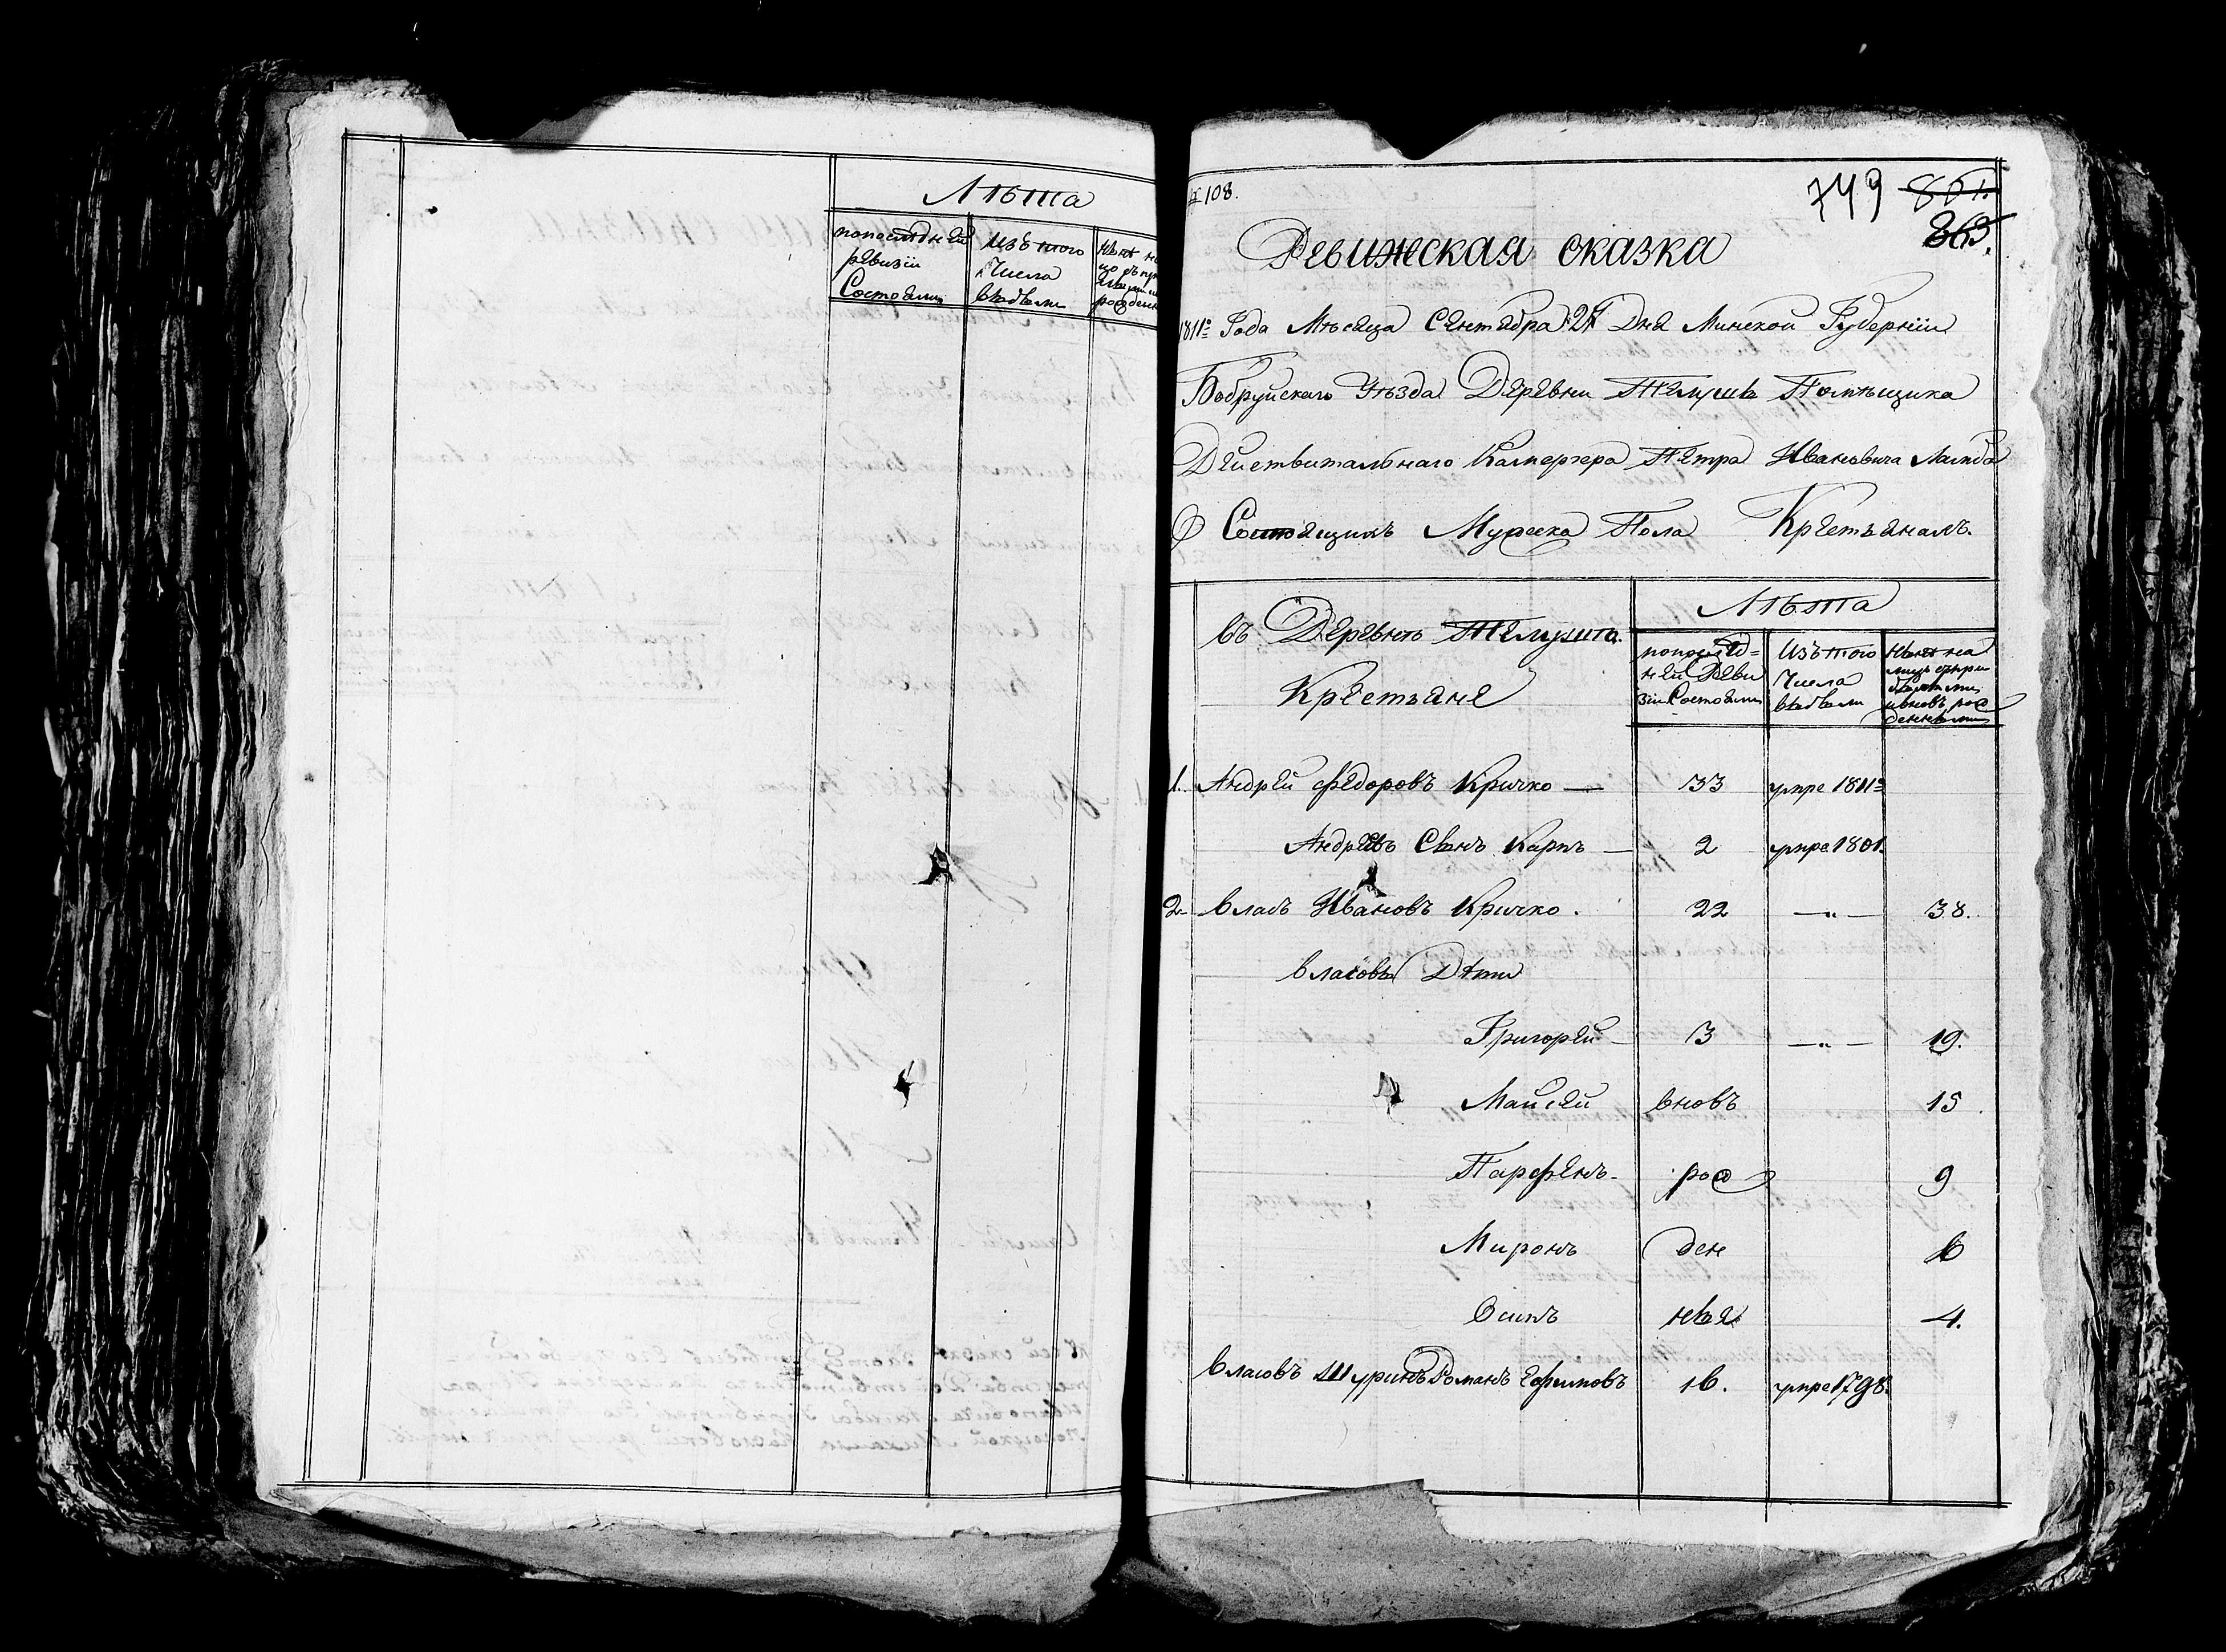 Лѣта
попоследней
ревизіи
Состояли
Изъ того
Числа
выбыли
№ 108.
749 861.
863.
Ревижская сказка
1811го Года Мѣсяца Сентября 21 Дня Минской Губерніи
Бобруйскаго Уѣзда Деревни Телуши Помѣщика
Действительнаго Камергера Петра Ивановича Ламба
О Состоящихъ Мужеска Пола Крестьянахъ.
Въ Деревнѣ Телуша.
Крестьяне
Лѣта
попослед=
ней Реви
зіи Состояли
Изъ того
Числа
выбыли
Ныне на
лицо съ при
былыми
и вновь рож
денными
1. Андрей Федоровъ Кричко — 33 умре 1811го
Андреевъ Сынъ Карпъ — 2 умре 1801.
2. Власъ Ивановъ Кричко. 22 —"— 38.
Власовы Дети
Григорей — 3 —"— 19.
Майсей вновь 15
Парфенъ — рож 9
Миронъ ден 6
Осипъ ные 4.
Власовъ Шуринъ Романъ Ефимовъ 16. умре 1798.